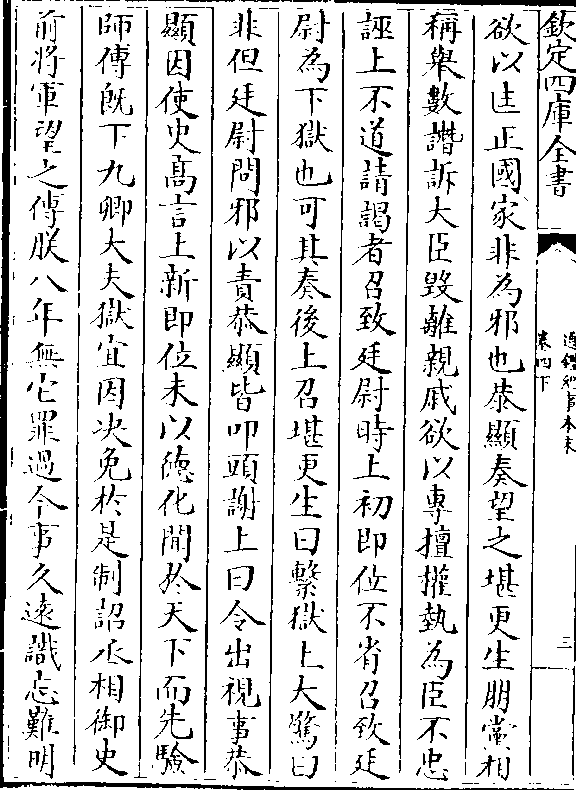 欽定四庫全書
通鑑紀事本末
卷四下
三
欲以匡正國家非為邪也恭顯奏望之堪更生朋黨相
稱舉數譖訴大臣毀離親戚欲以專擅權埶為臣不忠
誣上不道請謁者召致廷尉時上初即位不省召致廷
尉為下獄也可其奏後上召堪更生曰繫獄上大驚曰
非但廷尉問邪以責恭顯皆叩頭謝上曰令出視事恭
顯因使史髙言上新即位未以德化聞於天下而先驗
師傅既下九卿大夫獄宜因决免於是制詔丞相御史
前將軍望之傅朕八年無它罪過今事久逺識忘難明